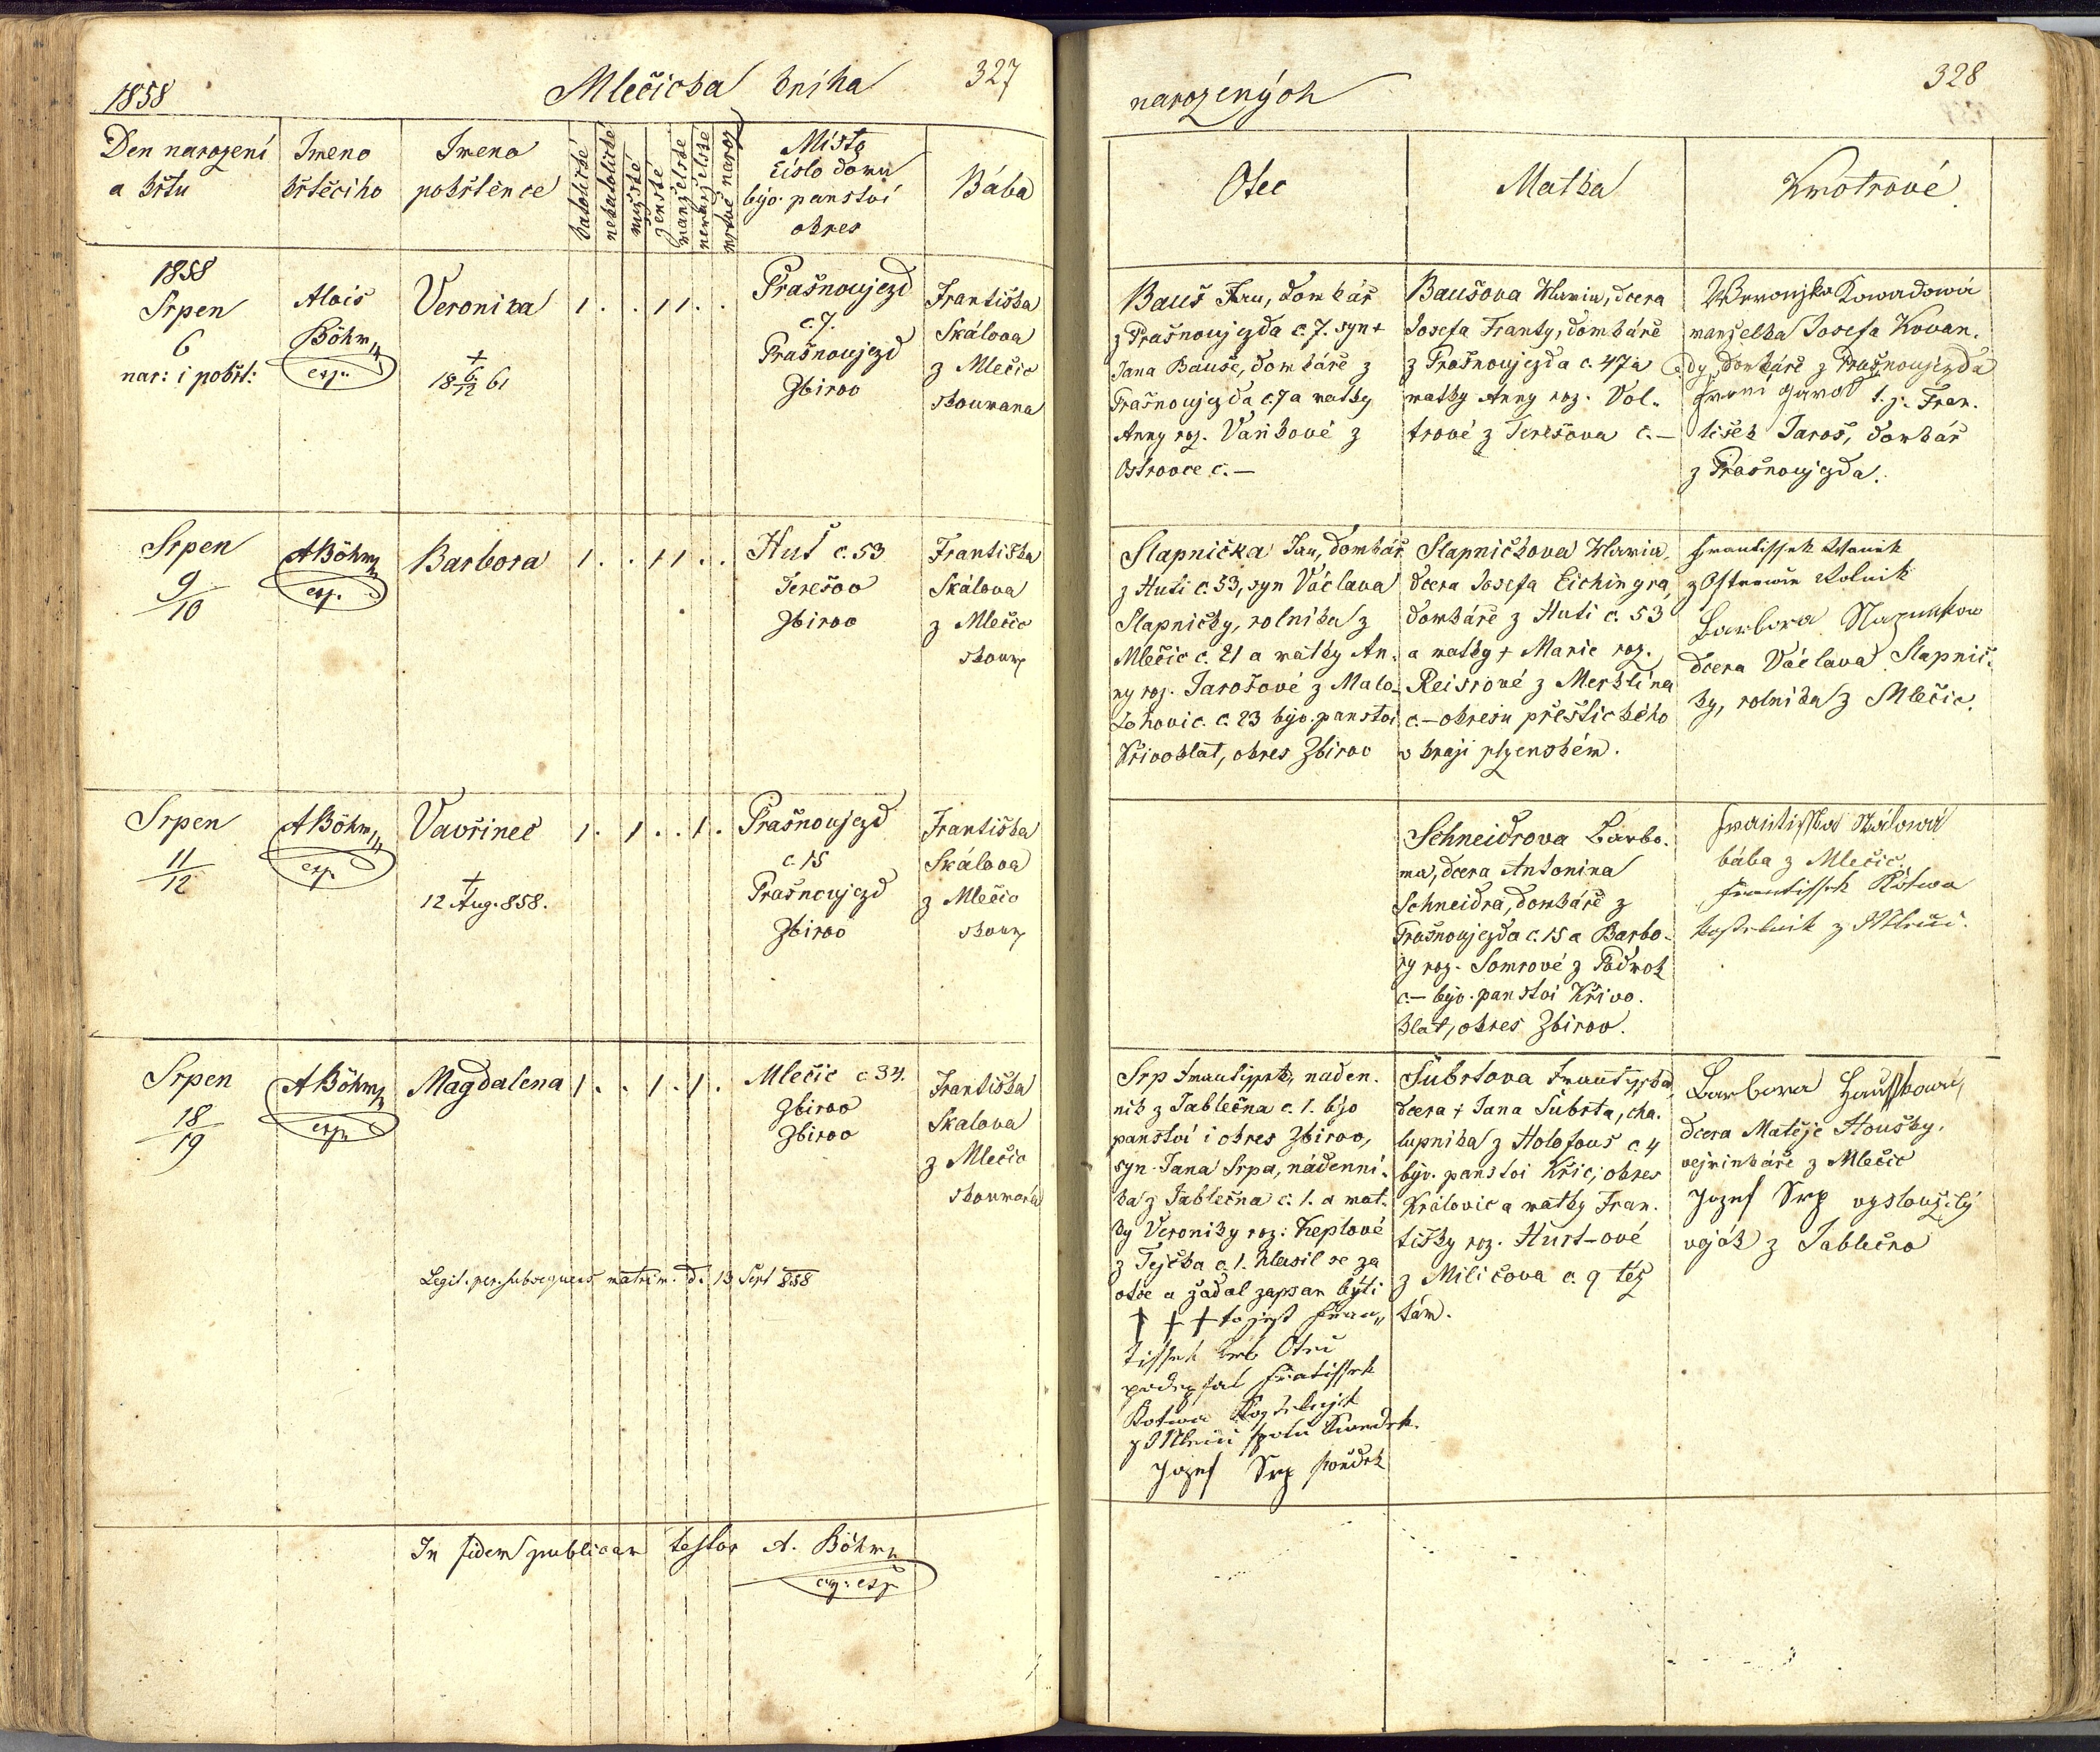 1858
Mlečická kniha
327
Den narození
a křtu
Jmeno
křtěcího
Jmeno
pokřtěnce
katolické
nekatolické
mužské
ženské
manželské
nemanželské
mrtvě naroz.
Místo
číslo domu
býv. panství
okres
Bába
1858
Srpen
6
nar: i pokřt:
Alois
Böhm
exp.
Veronika
†
18 6/12 61
1 . . 1 1 . .
Prašnoujezd
c. 7.
Prašnoujezd
Zbirov
Františka
Skálova
z Mlečic
zkoumana
Srpen
9
10
A Böhm
exp.
Barbora
1 . . 1 1 . .
Huť c. 53
Terešov
Zbirov
Františka
Skálova
z Mlečic
zkoum
Srpen
11
12
A Böhm
exp.
Vavřinec
†
12 Aug. 858.
1 . 1 . . 1 .
Prašnoujezd
c. 15
Prašnoujezd
Zbirov
Františka
Skálova
z Mlečic
zkoum
Srpen
18
19
A Böhm
exp.
Magdalena
1 . . 1 . 1 .
Mlečic c 34.
Zbirov
Zbirov
Františka
Skalova
z Mlečic
zkoumaná
Legit. per subsequens matrim. d. 13 Sept 858
In fidem publicam testor A. Böhm
exp.
narozených
328
Otec
Matka
Kmotrové
Bauš Jan, domkář
z Prašnoujezda c. 7. syn †
Jana Bauše, domkáře z
Prašnoujezda c. 7 a matky
Anny roz. Vaňkové z
Ostrovce c. —
Baušova Maria, dcera
Josefa Franty, domkáře
z Prašnoujezda c. 47 a
matky Anny roz. Vol-
trové z Terešova c. —
Kowadowá
manželka Josefa Kovan-
dy, domkáře z Prašnoujezda
t. j. Fran-
tišek Jaroš, domkář
z Prašnoujezda.
Slapnička Jan, domkář
z Huti c. 53, syn Václava
Slapničky, rolníka z
Mlečic c. 21 a matky An-
ny roz. Jarošové z Malo-
Lohovic c. 23 býv. panství
Křivoklat, okres Zbirov
Slapničkova Maria,
dcera Josefa Eichingra,
domkáře z Huti c. 53
a matky † Marie roz.
Reisrové z Merklína
c. — okresu přeštického
v kraji plzenském.
Frantissek Wanek
z Ostrowce Rolnik
Barbora
dcera Václava Slapnič-
ky, rolníka z Mlečic.
Schneidrova Barbo-
ra, dcera Antonina
Schneidra, domkáře z
Prašnoujezda c. 15 a Barbo-
ry roz. Somrové z Podmok
c. — býv. panství Křivo-
klat, okres Zbirov.
Frantisska Skálowá
bába z Mlečic.
Frantissek Kotwa
kostelnik z Mlečic.
Srp Frantissek, naden-
ník z Jablečna c. 1. býv
panství i okres Zbirov,
syn Jana Srpa, nádenní-
ka z Jablečna c. 1. a mat-
ky Veroniky roz: Keplové
z Tejčka c. 1. hlasil se za
otce a žádal zapsan býti
† † † to jest Fran„
tissek Srb Otec
podepsal Fratissek
Kotwa Kostelnjk
z Mlečic spolu Swedek.
Jozef Srp swědek
Šubrtova Frantisska,
dcera † Jana Šubrta, cha-
lupníka z Holofous c. 4
býv. panství Křic, okres
Královic a matky Fran-
tišky roz. Hurt-ové
z Miličova c. 9 též
tám.
Barbora Hausskowá,
dcera Matěje Houšky,
vejminkáře z Mlečic
Jozef Srp vysloužilý
voják z Jablečna